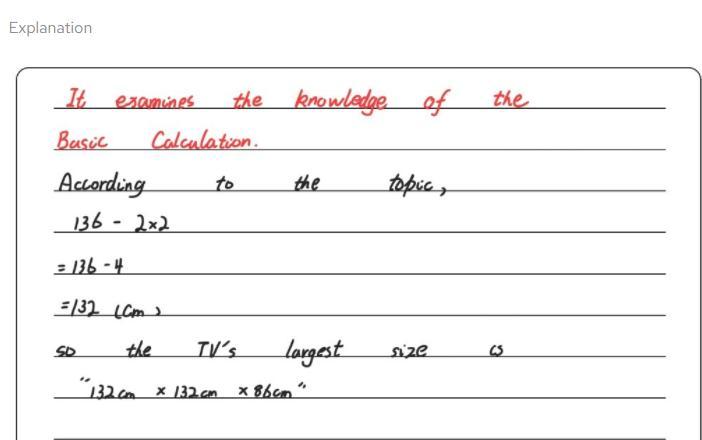 Explanation
It examines the knowledge of the
Basic Calculation.
According to the topic,
136 - 2×2
=136-4
=132 (cm)
so the TV's largest size is
"132cm × 132cm × 86cm"